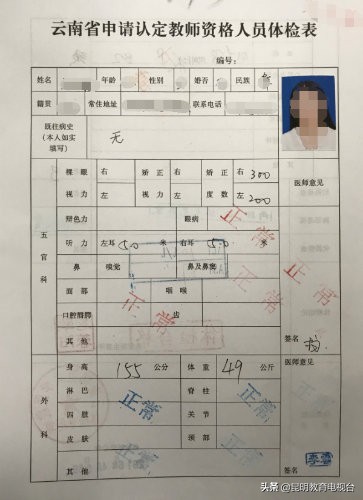 云南省申请认定教师资格人员体检表
编号：
姓名 年龄 性别 婚否 民族
籍贯 常住地址 联系电话
既往病史
（本人如实
填写）
无
裸眼 右 矫正 右 矫正 右 300
视力 左 视力 左 度数 左 200
医师意见
五官科
辩色力 眼病
正常
听力 左耳 5.0 米 右耳 5.0 米
鼻 嗅觉 鼻及鼻窦
正常
面部 咽喉
正常
口腔唇腭 齿
正常
正常
其他
签名
外科
身高 155 公分 体重 49 公斤
医师意见
淋巴 脊柱
正常
四肢 关节
正常
正常
皮肤 颈部
正常
其他
签名
头条 @昆明教育电视台